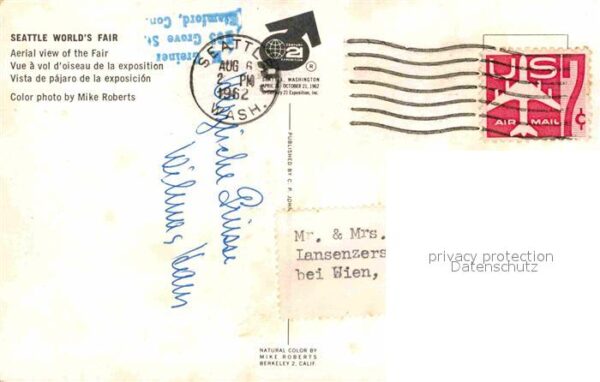 SEATTLE WORLD'S FAIR
Aerial view of the Fair
Vue à vol d'oiseau de la exposition
Vista de pájaro de la exposición
Color photo by Mike Roberts
Greiner
Grove St.
Stamford, Con
SEATTLE
AUG 6
2 PM
1962
WASH.
CENTURY 21
WASHINGTON
OCTOBER 21, 1962
21 Exposition, Inc.
®
US
7¢
AIR MAIL
Herzliche Grüsse
Wilma
PUBLISHED BY C. P. JOHN
Mr. & Mrs.
Lansenzers
bei Wien,
privacy protection
Datenschutz
NATURAL COLOR BY
MIKE ROBERTS
BERKELEY 2, CALIF.